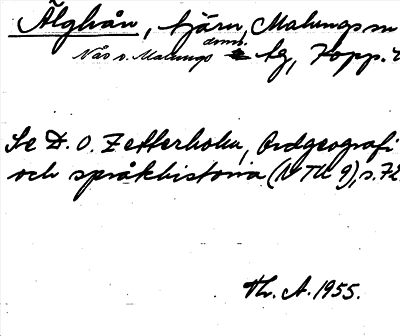 Älghån, tjärn, Malungs sn
Nås o. Malungs doms. tg, Kopp. l
Se D. O. Zetterholm, Ordgeografi
och språkhistoria (NTU 9), s.
Th. A. 1955.